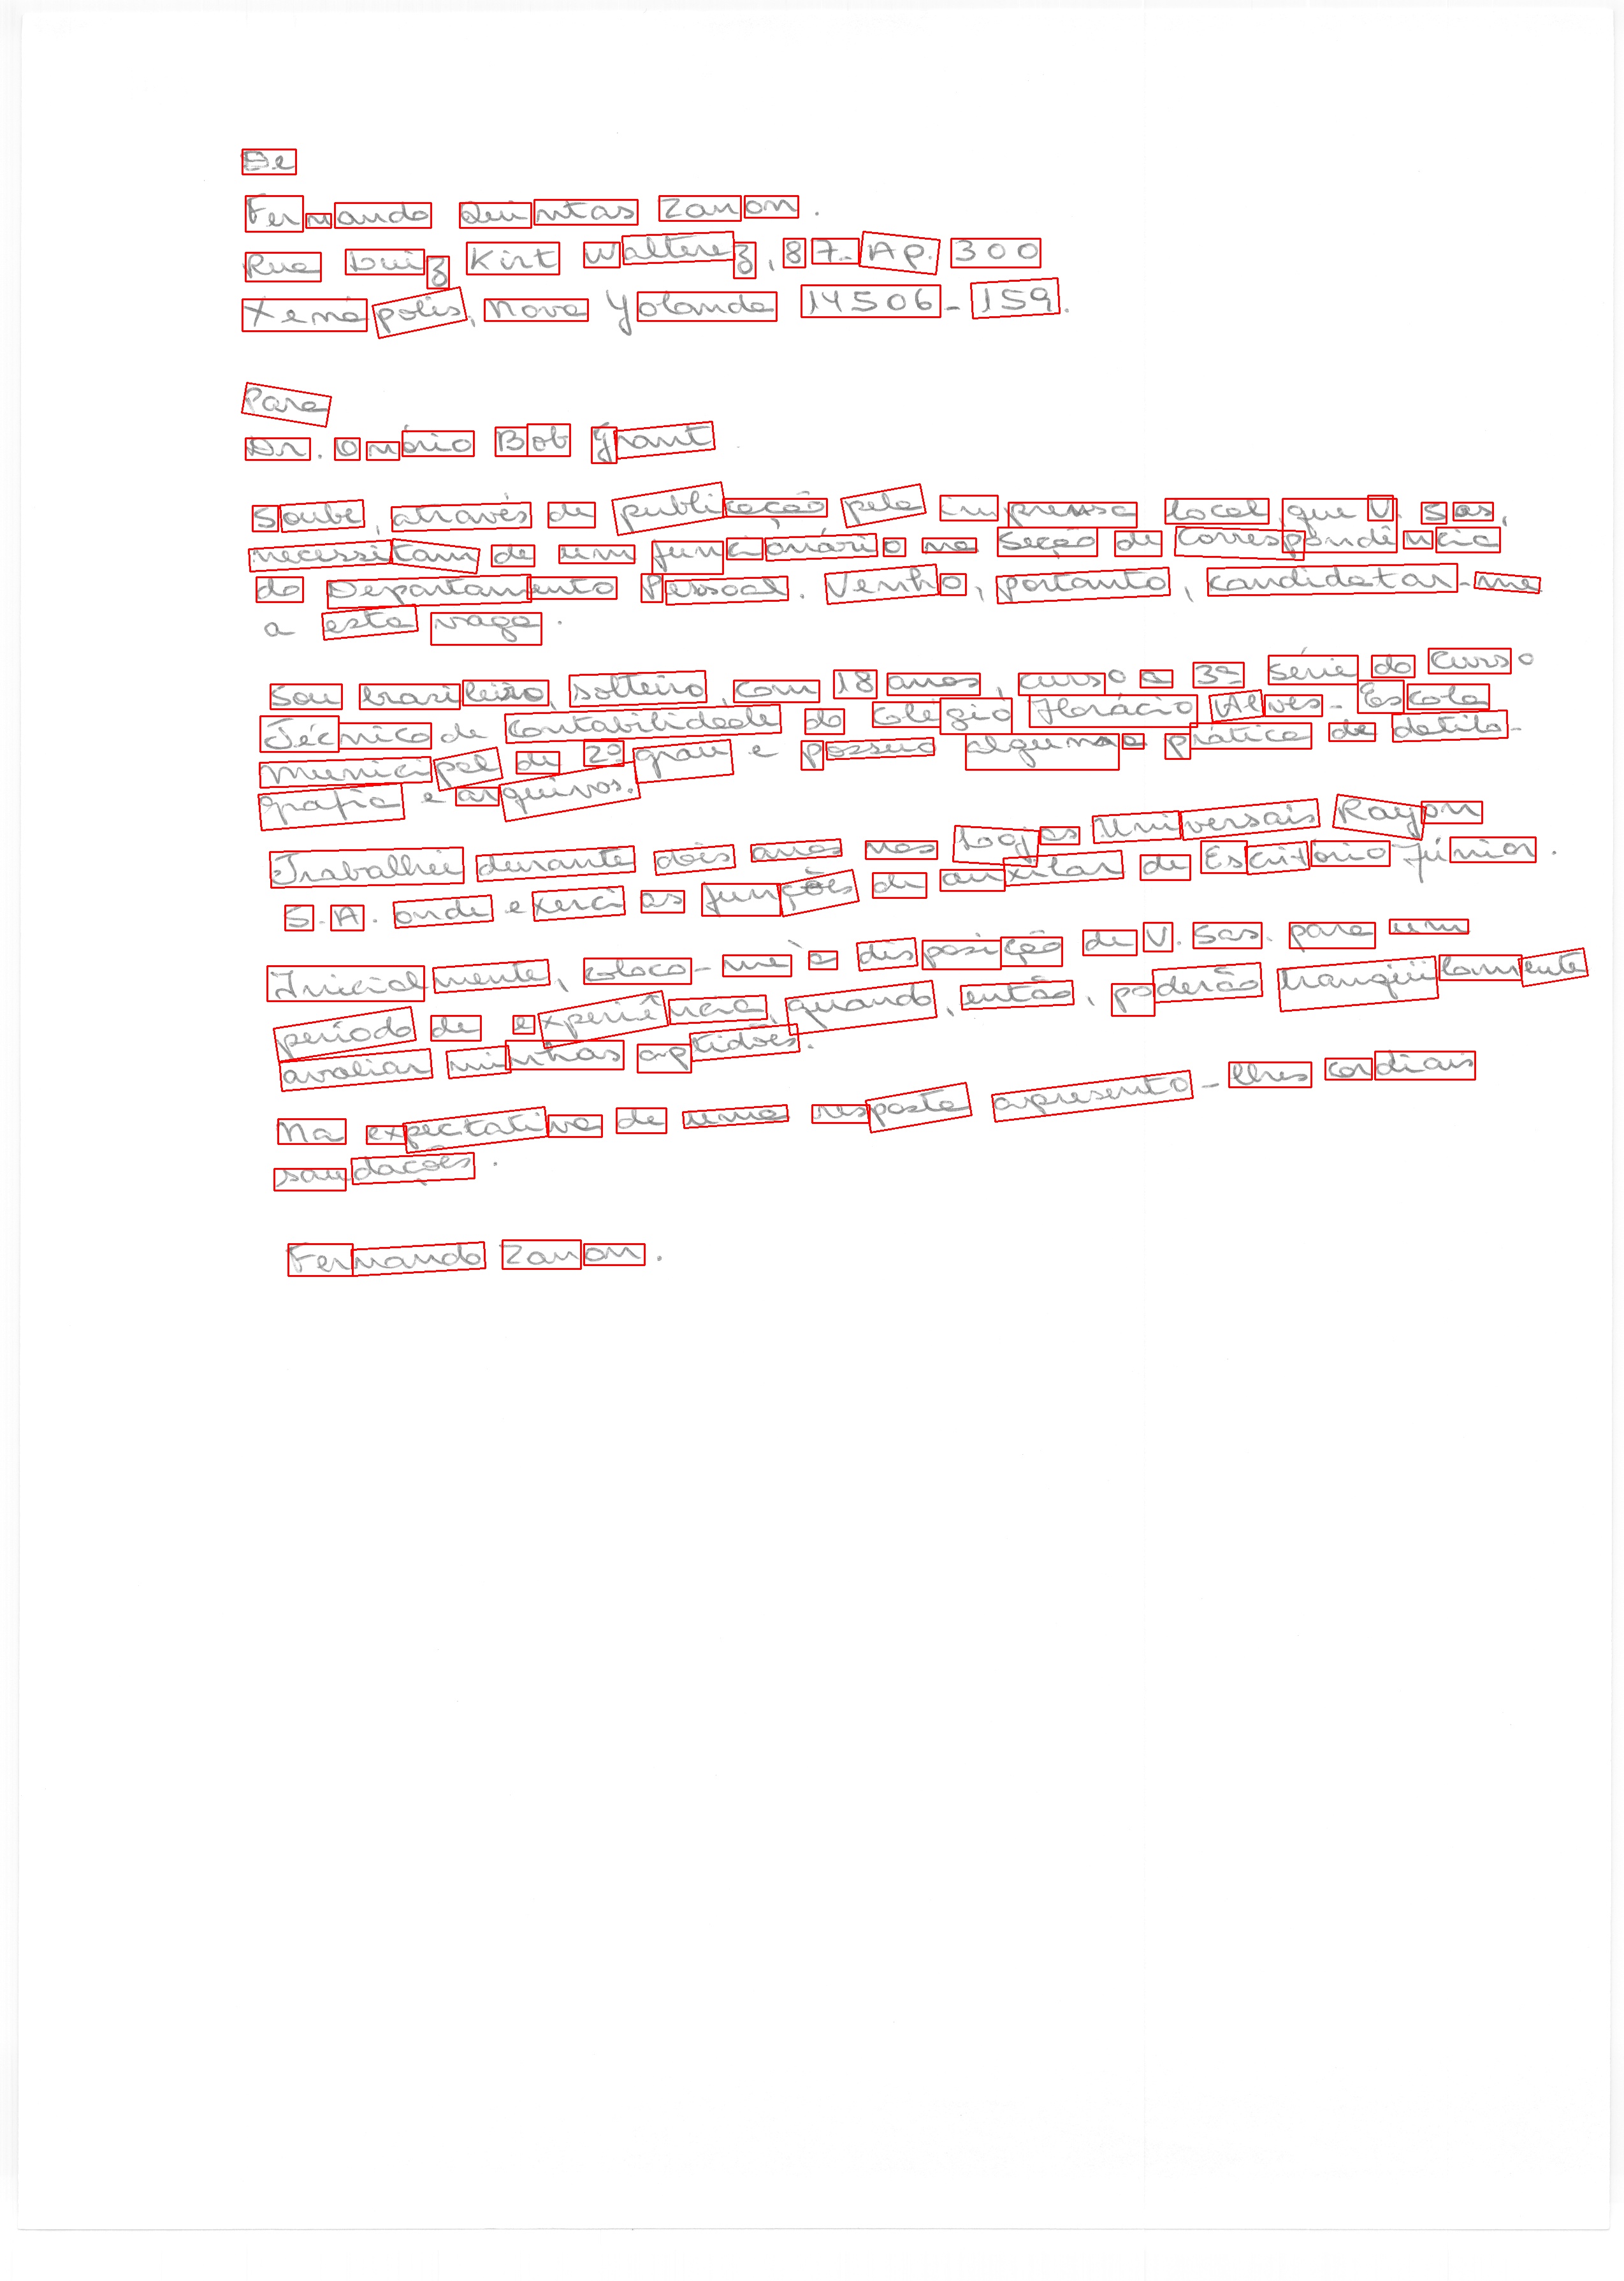 De
Fernando Quintas Zanon.
Rua Luiz Kirt Walterez, 87. Ap. 300
Xenápolis, Nova Yolanda 14506-159.
Para
Dr. Onório Bob Grant
Soube, através de publicação pela imprensa local, que V. Sas,
necessitam de um funcionário na Seção de Correspondência
do Departamento Pessoal. Venho, portanto, candidatar-me
a esta vaga.
Sou brasileiro, solteiro, com 18 anos, curso a 3ª série do Curso
Técnico de Contabilidade do Colégio Horácio Alves - Escola
Municipal de 2º grau e possuo alguma prática de datilo-
grafia e arquivos.
Trabalhei durante dois anos nas Logjas Universais Rayon
S.A. onde exerci as funções de auxilar de Escritório Júnior.
Inicialmente, coloco-me à disposição de V. Sas. para um
período de experiência, quando, então, poderão tranqüilamente
avaliar minhas aptidões.
Na expectativa de uma resposta apresento-lhes cordiais
saudações.
Fernando Zanon.